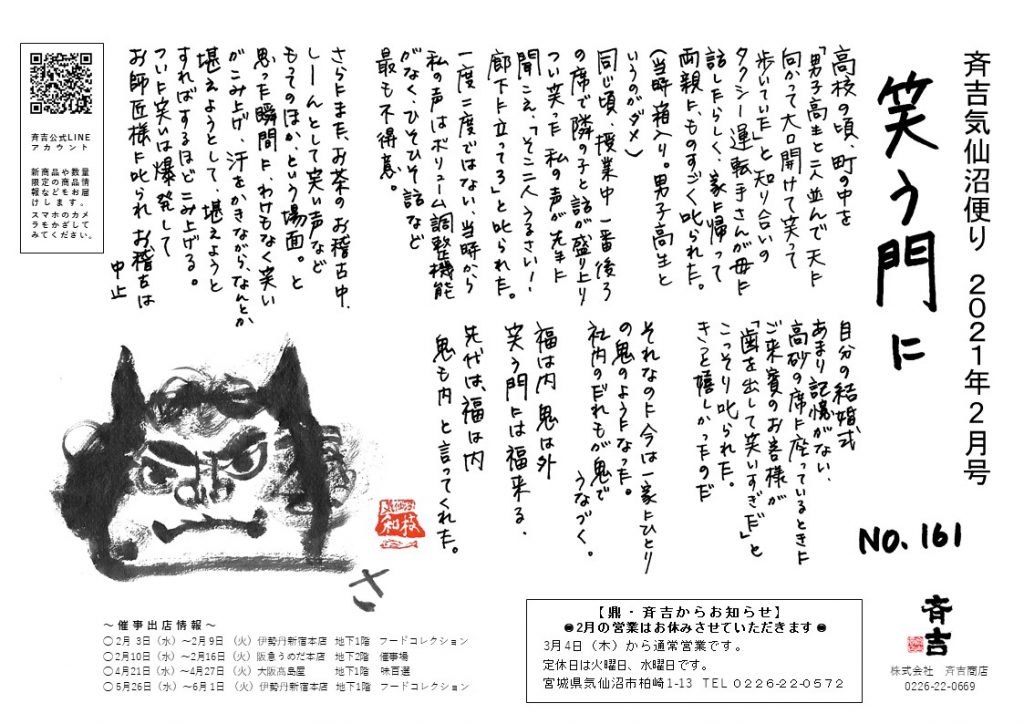 斉吉気仙沼便り 2021年2月号
笑う門に
NO. 161
高校の頃、町の中を
「男子高生と二人並んで天に
向かって大口開けて笑って
歩いていた」と知り合いの
タクシー運転手さんが母に
話したらしく、家に帰って
両親に、ものすごく叱られた。
(当時箱入り。男子高生と
いうのがダメ)
同じ頃、授業中一番後ろ
の席で隣の子と話が盛り上り
つい笑った私の声が先生に
聞こえ、「そこ二人うるさい!
廊下に立ってろ」と叱られた。
一度二度ではない。当時から
私の声はボリューム調整機能
がなく、ひそひそ話など
最も不得意。
さらにまた、お茶のお稽古中、
しーんとして笑い声など
もってのほか、という場面。と
思った瞬間に、わけもなく笑い
がこみ上げ、汗をかきながら、なんとか
堪えようとして、堪えようと
すればするほどこみ上げる。
ついに笑いは爆発して
お師匠様に叱られ お稽古は
中止
自分の結婚式
あまり記憶がない、
高砂の席に座っているときに
ご来賓のお客様が
「歯を出して笑いすぎだ」と
こっそり叱られた。
きっと嬉しかったのだ
それなのに今は一家にひとり
の鬼のようになった。
社内のだれもが鬼で
うなづく。
福は内 鬼は外
笑う門には福来る、
先代は、福は内
鬼も内 と言ってくれた。
さ
斉吉公式LINE
アカウント
新商品や数量
限定の商品情
報などもお届
けします。
スマホのカメ
ラをかざして
みてください。
~催事出店情報~
○2月 3日(水)~2月9日 (火)伊勢丹新宿本店 地下1階 フードコレクション
○2月10日(水)~2月16日(火)阪急うめだ本店 地下2階 催事場
○4月21日(水)~4月27日(火)大阪高島屋 地下1階 味百選
○5月26日(水)~6月1日 (火)伊勢丹新宿本店 地下1階 フードコレクション
【鼎・斉吉からお知らせ】
●2月の営業はお休みさせていただきます●
3月4日(木)から通常営業です。
定休日は火曜日、水曜日です。
宮城県気仙沼市柏崎1-13 TEL 0226-22-0572
斉吉
株式会社 斉吉商店
0226-22-0669